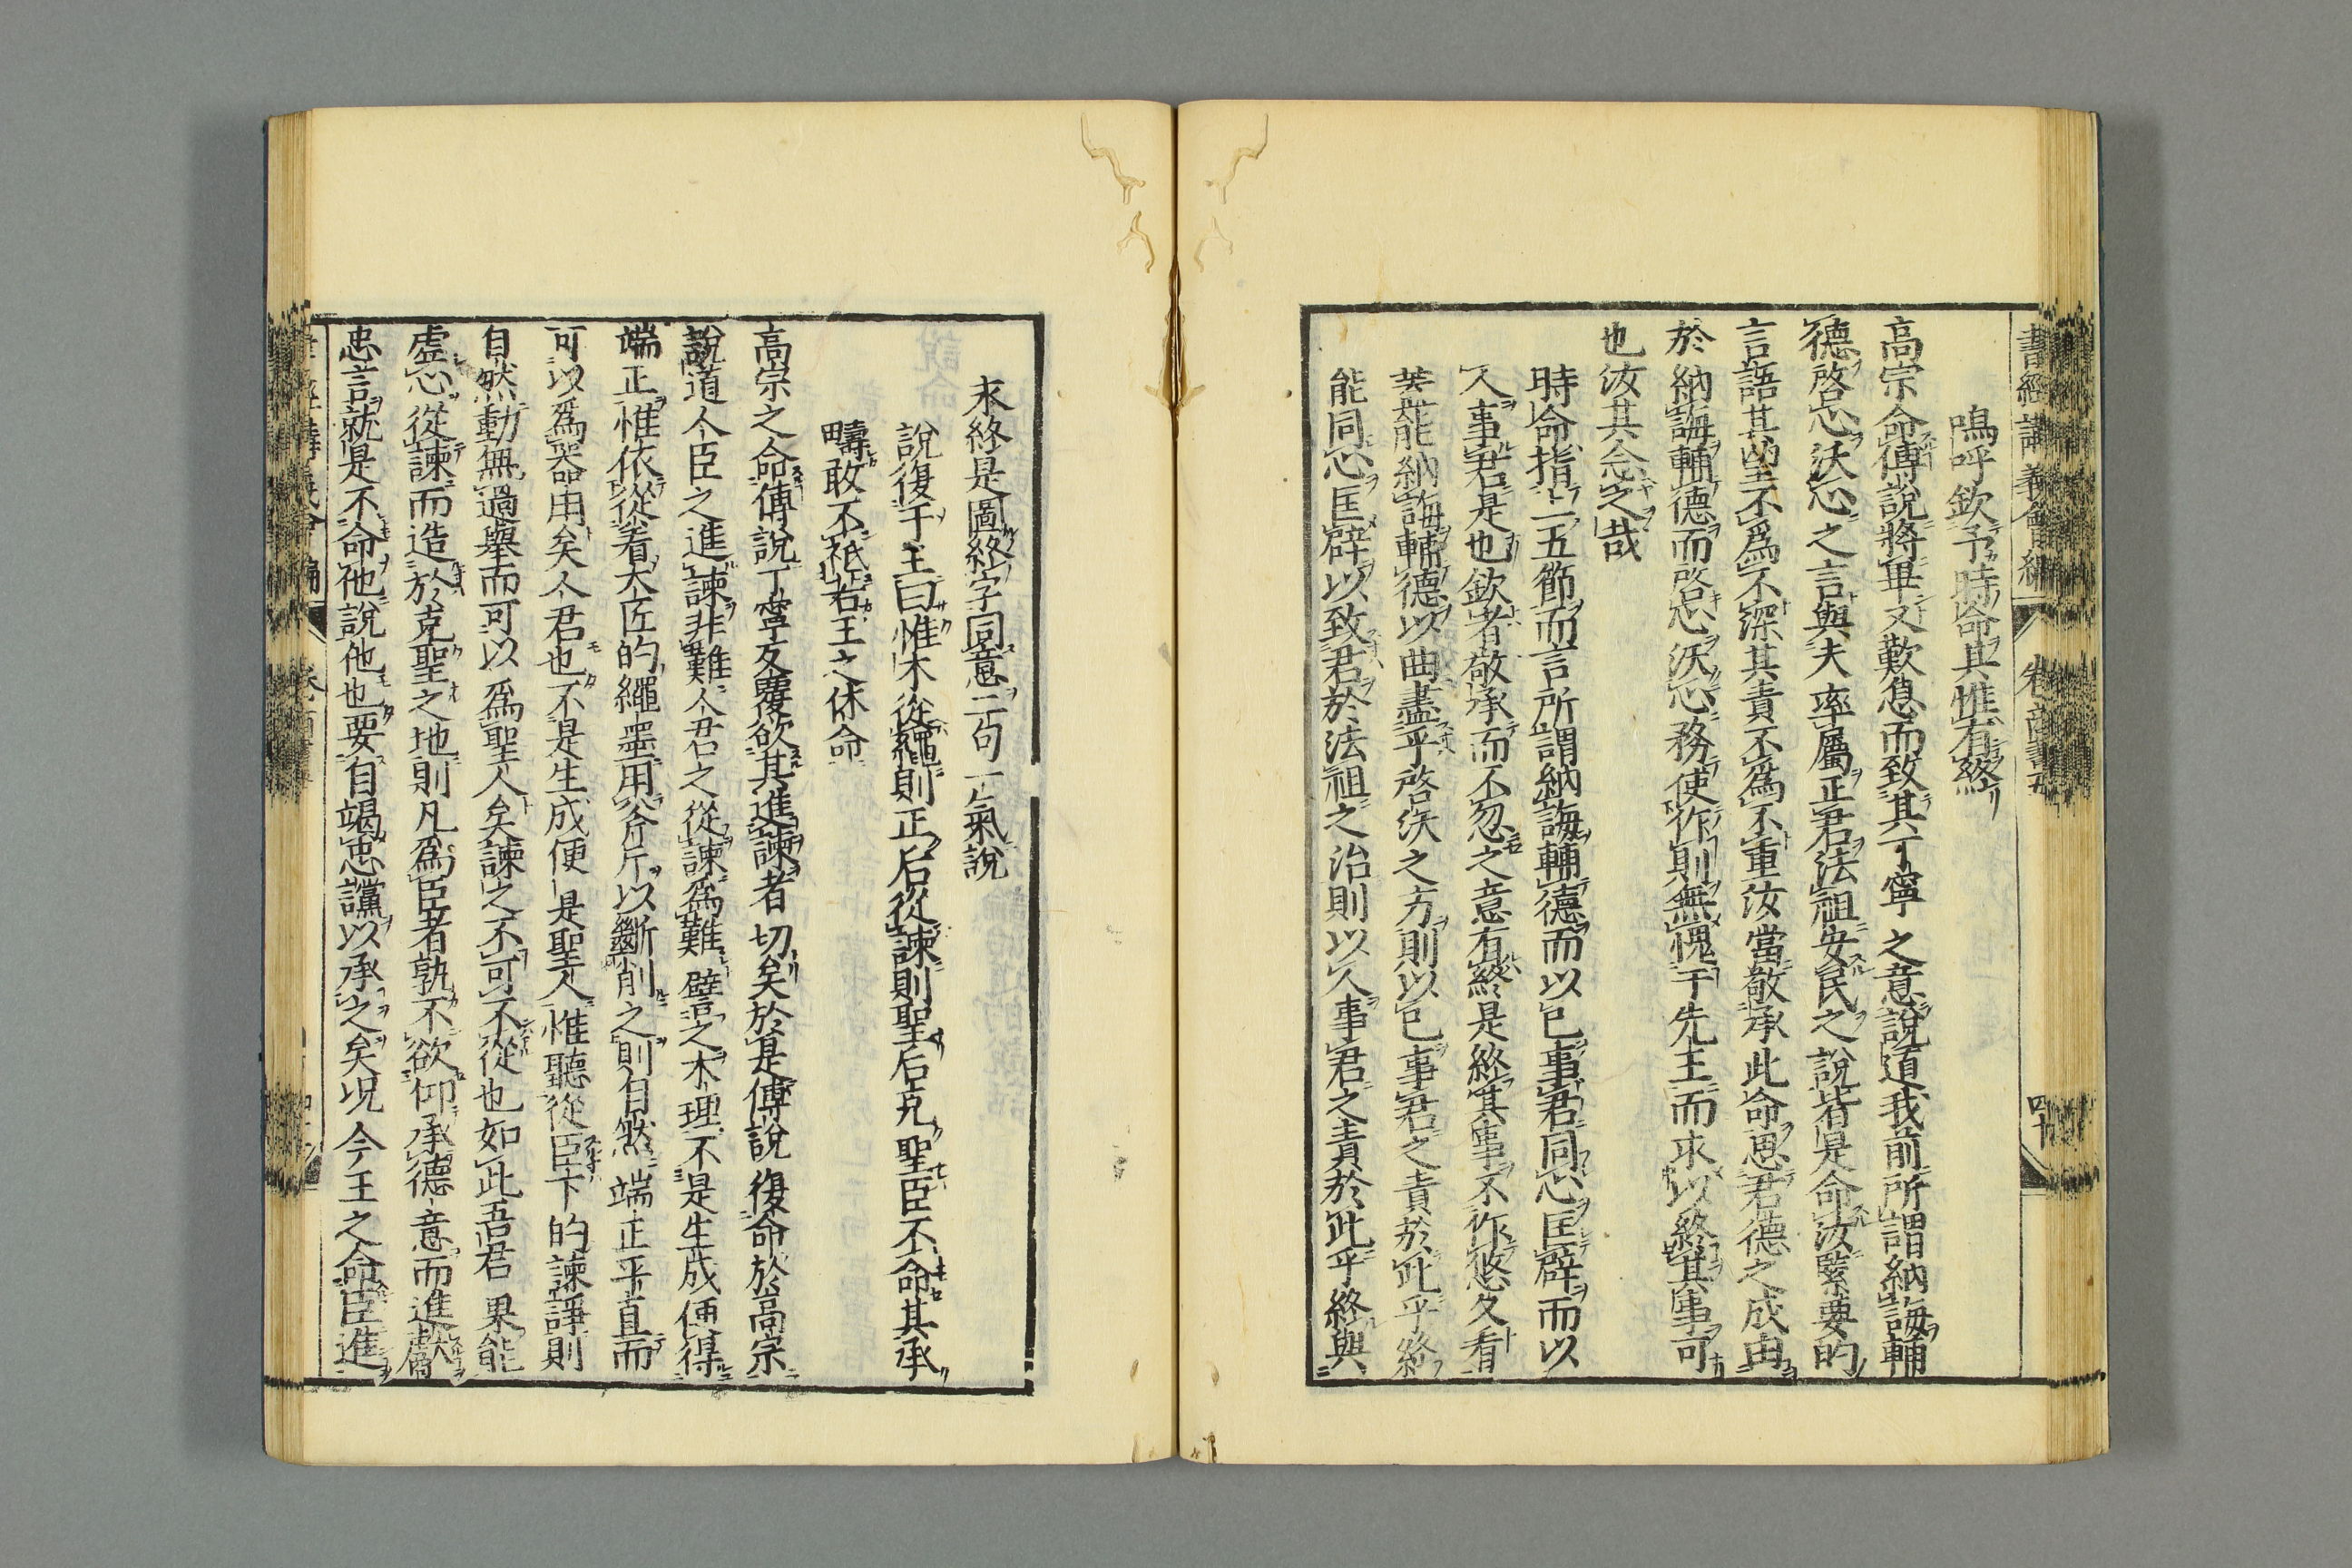 書經講義會編
卷尚書五
四十
嗚呼欽予時命其惟有終
高宗命傅說將畢又歎息而致其丁寧之意說道我前所謂納誨輔
德啓心沃心之言與夫率屬正君法祖安民之說皆是命汝緊要的
言語其望不爲不深其責不爲不重汝當敬承此命思君德之成由
於納誨輔德而啓心沃心務使作則無愧于先王而求以終其事可
也汝其念之哉
時命指上五節而言所謂納誨輔德而以已事君同心匡辟而以
人事君是也欽者敬承而不忽之意有終是終其事不作悠久看
莫能納誨輔德以曲盡乎啓沃之方則以已事君之責於此乎終
能同心匡辟以致君於法祖之治則以人事君之責於此乎終與
永終是圖終字同意二句一氣說
說復于王曰惟木從繩則正后從諫則聖后克聖臣不命其承
疇敢不祗若王之休命
高宗之命傅說丁寧反覆欲其進諫者切矣於是傅說復命於高宗
說道人臣之進諫非難人君之從諫爲難譬之木理不是生成便得
端正惟依從着大匠的繩墨用斧斤以斷削之則自然端正平直而
可以爲器用矣人君也不是生成便是聖人惟聽從臣下的諫諍則
自然動無過舉而可以爲聖人矣諫之不可不從也如此吾君果能
虛心從諫而造於克聖之地則凡爲臣者孰不欲仰承德意而進獻
忠言就是不命他說他也要自竭忠讜以承之矣况今王之命臣進